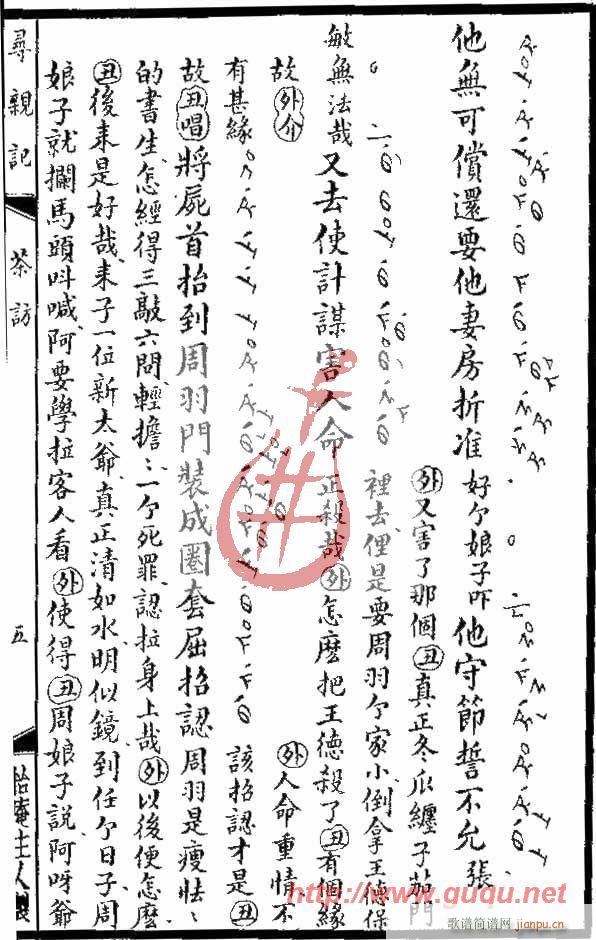 他無可償還要他妻房折准好个娘子吓他守節誓不允張
敏無法哉又去使計謀害人命正殺哉外怎麼把王德殺了丑有個緣
外又害了那個丑真正冬瓜纏子茄門
裡去俚是要周羽个家小倒拿王德保
故外介
有甚緣
外人命重情不
該招認才是丑
故丑唱將屍首抬到周羽門裝成圈套屈招認周羽是瘦怯怯
的書生怎經得三敲六問輕擔擔一个死罪認拉身上哉外以後便怎麼
丑後來是好哉來子一位新太爺真正清如水明似鏡到任个日子周
娘子就攔馬頭呌喊阿要學拉客人看外使得丑周娘子說阿呀爺
尋親記
茶訪
五
怡庵主人製
http://www.guqu.net
歌谱简谱网
jianpu.cn